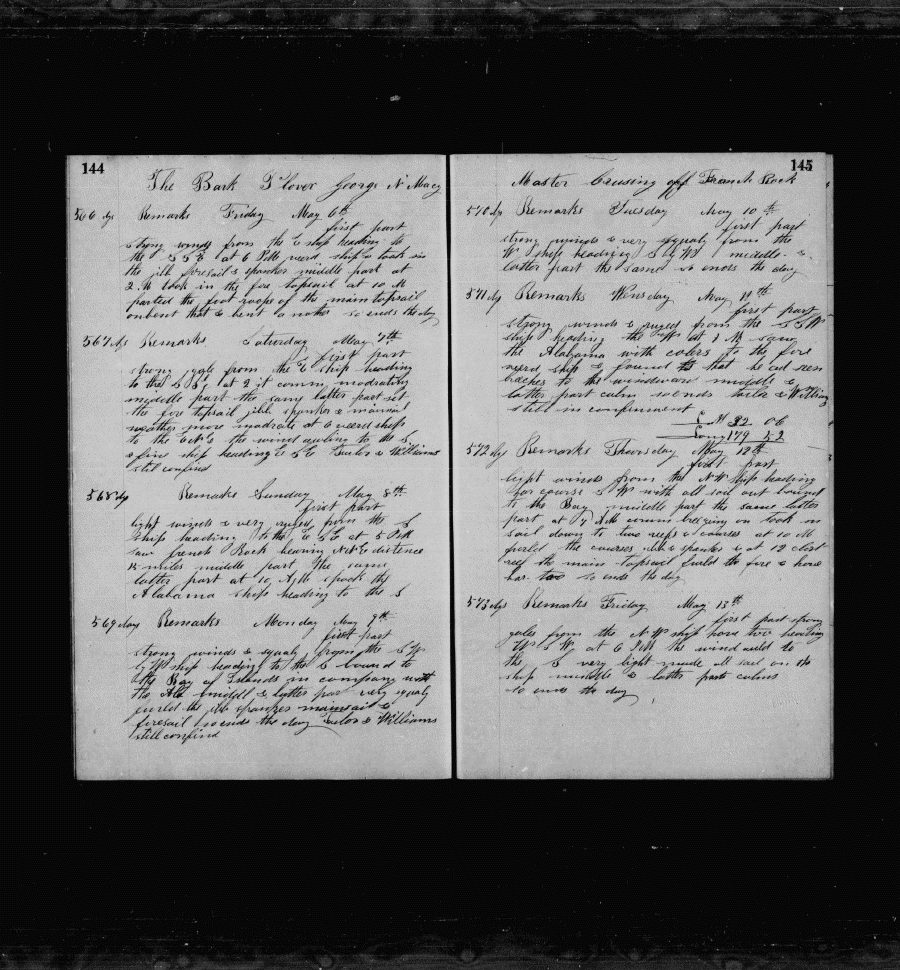 144
The Bark Plover George N Macy
566 dys Remarks Friday May 6th
first part
strong winds from the E ship heading to
the S S E at 6 P M weerd ship & took in
the jib foresail & spanker middle part at
2 M took in the fore topsail at 10 M
parted the foot roops of the main topsail
onbent that & bent a nother so ends the day
567 dys Remarks Saturday May 7th
first part
strong from the E ship heading
to the S at 2 it comm modrating
middle part the same latter part set
the fore topsail jibb spanker & mainsail
weather more modrate at 6 weerd ship
to the E N E the wind to the S
ship heading E S E Tailor & Williams
still confind
568 dy Remarks Sunday May 8th
first part
light winds & very ruged from the S
ship heading to the E S E at 5 P M
saw french Rock bearing N N E distence
15 miles middle part the same
latter part at 10 A M spook the
Alabama ship heading to the S
569 day Remarks Monday May 9th
first part
strong winds & squaly from the S W
by W ship heading to the S bound to
the Bay of Islands in company with
the Ala middle & latter part very squaly
furld the jib spanker mainsail &
foresail so ends the day Tailor & Williams
still confind
145
Master Crusing off French Rock
570 dy Remarks Tuesday May 10th
first part
strong winds & very squaly from the
W ship heading S by W middle &
latter part the same so ends the day
571 dy Remarks Wensday May 11th
first part
strong winds & ruged from the S S W
ship heading the W at 1 M saw
the Alabama with colers to the fore
weerd ship & found that he had seen
breches to the windward middle &
latter part calm so ends Tailor & William
still in confinment
L H 32 06
Long 179 52
572 dy Remarks Thoursday May 12th
first part
light winds from the N W ship heading
hor course S W with all sail out bound
to the Bay middle part the same latter
part at 7 A M comm brezing on took in
sail down to two reefs & courses at 10 M
furld the courses jib & spanker & at 12 close
reef the main topsail furld the fore & hove
har too so ends the day
573 dys Remarks Friday May 13th
first part strong
gales from the N W ship hove two heading
W S W at 6 P M the wind to
the S very light made all sail on the
ship middle & latter parts calms
so ends the day